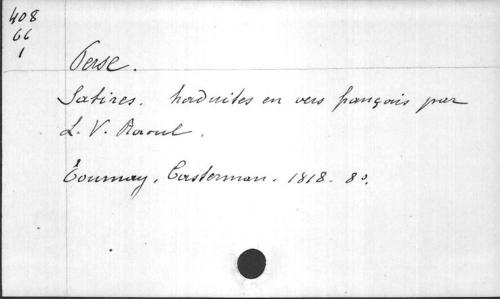 408
66
1
Perse.
Satires. traduites en vers français par
L. V. Raoul.
Tournay, Casterman. 1818. 8º.